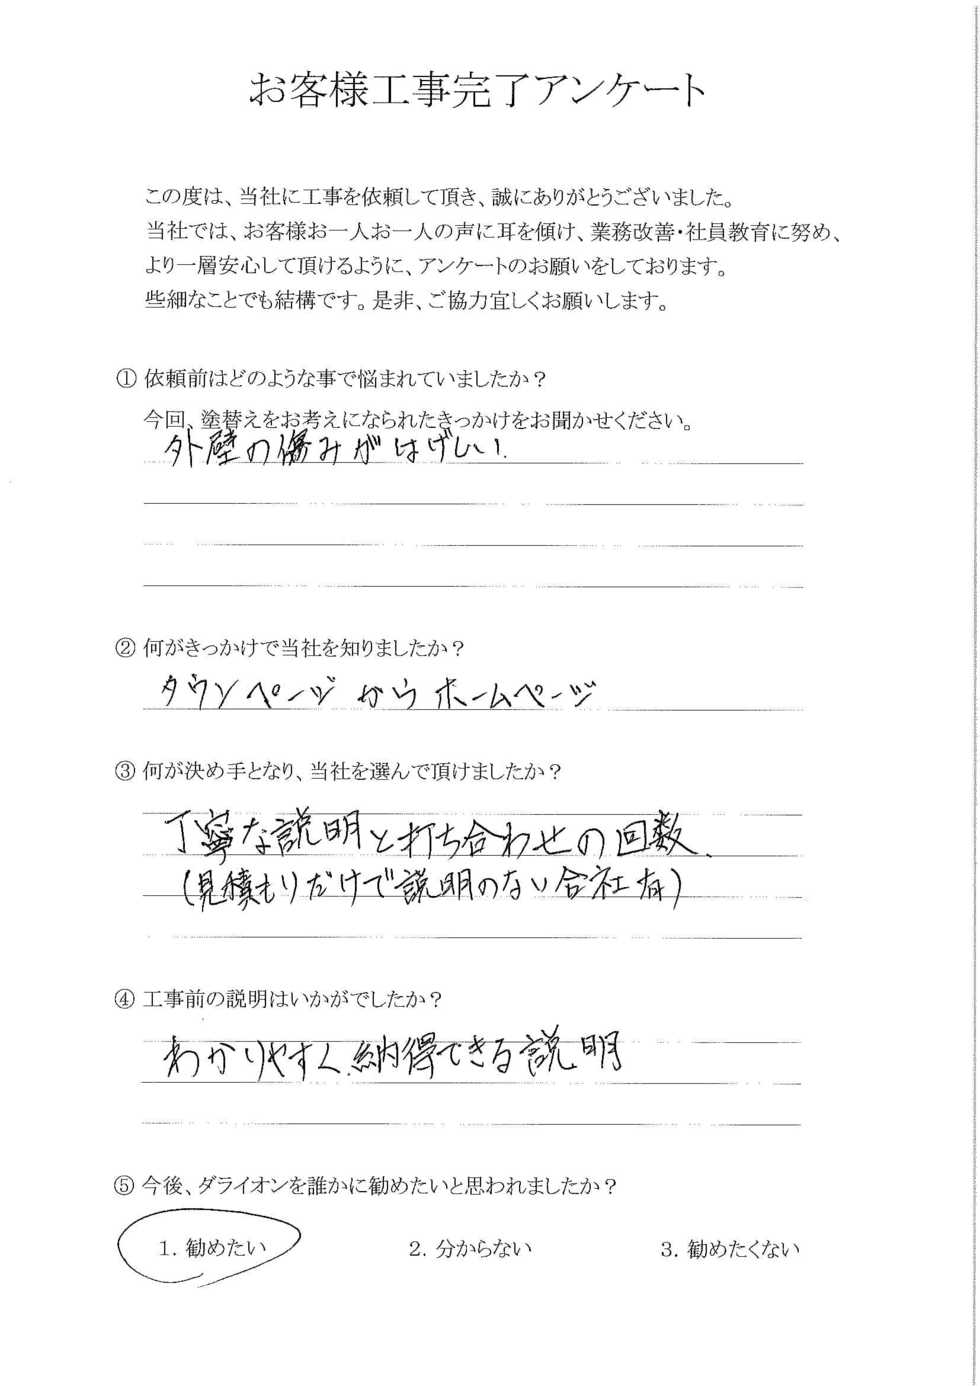 お客様工事完了アンケート
この度は、当社に工事を依頼して頂き、誠にありがとうございました。
当社では、お客様お一人お一人の声に耳を傾け、業務改善・社員教育に努め、
より一層安心して頂けるように、アンケートのお願いをしております。
些細なことでも結構です。是非、ご協力宜しくお願いします。
① 依頼前はどのような事で悩まれていましたか？
今回、塗替えをお考えになられたきっかけをお聞かせください。
外壁の傷みがはげしい.
② 何がきっかけで当社を知りましたか？
タウンページからホームページ
③ 何が決め手となり、当社を選んで頂けましたか？
丁寧な説明と打ち合わせの回数、
(見積もりだけで説明のない会社有)
④ 工事前の説明はいかがでしたか？
わかりやすく、納得できる説明
⑤ 今後、ダライオンを誰かに勧めたいと思われましたか？
1. 勧めたい 2. 分からない 3. 勧めたくない